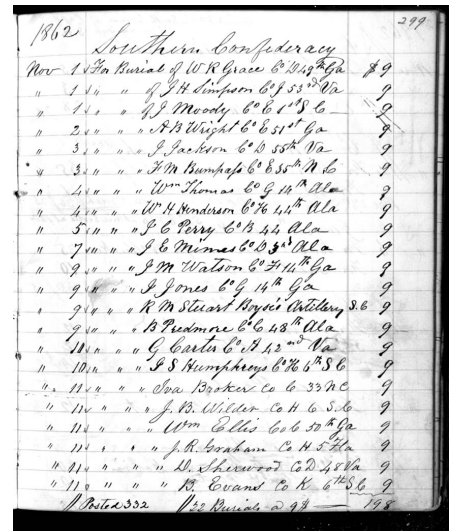 299
1862
Southern Confederacy
Nov 1 " For Burial of W R Grace Co D 49th Ga $ 9
" 1 " " " of J H Simpson Co J 53rd Va 9
" 1 " " " of J Moody Co E 1st S C 9
" 2 " " " A B Wright Co E 51st Ga 9
" 3 " " " J Jackson Co D 55th Va 9
" 3 " " " F M Bumpass Co E 35th N C 9
" 4 " " " Wm Thomas Co G 14th Ala 9
" 4 " " " W H Henderson Co H 44th Ala 9
" 5 " " " J C Perry Co B 44 Ala 9
" 7 " " " J E Mimes Co D 3rd Ala 9
" 9 " " " J M Watson Co F 14th Ga 9
" 9 " " " J Jones Co G 14th Ga 9
" 9 " " " R M Stuart Artillery S. C 9
" 9 " " " B Predmore Co C 48th Ala 9
" 10 " " " G Carter Co A 42nd Va 9
" 10 " " " J S Humphreys Co H 6th S C 9
" 11 " " " Iva Broker Co C 33 N C 9
" 11 " " " J. B. Wilder Co H 6 S. C 9
" 11 " " " Wm Ellis Co C 50th Ga 9
" 11 " " " J. R. Graham Co H. 5 Fla 9
" 11 " " " D. Sherwood Co D 48 Va 9
" 11 " " " B. Evans Co K 6th S C 9
Posted 332 22 Burials a 9$ 198